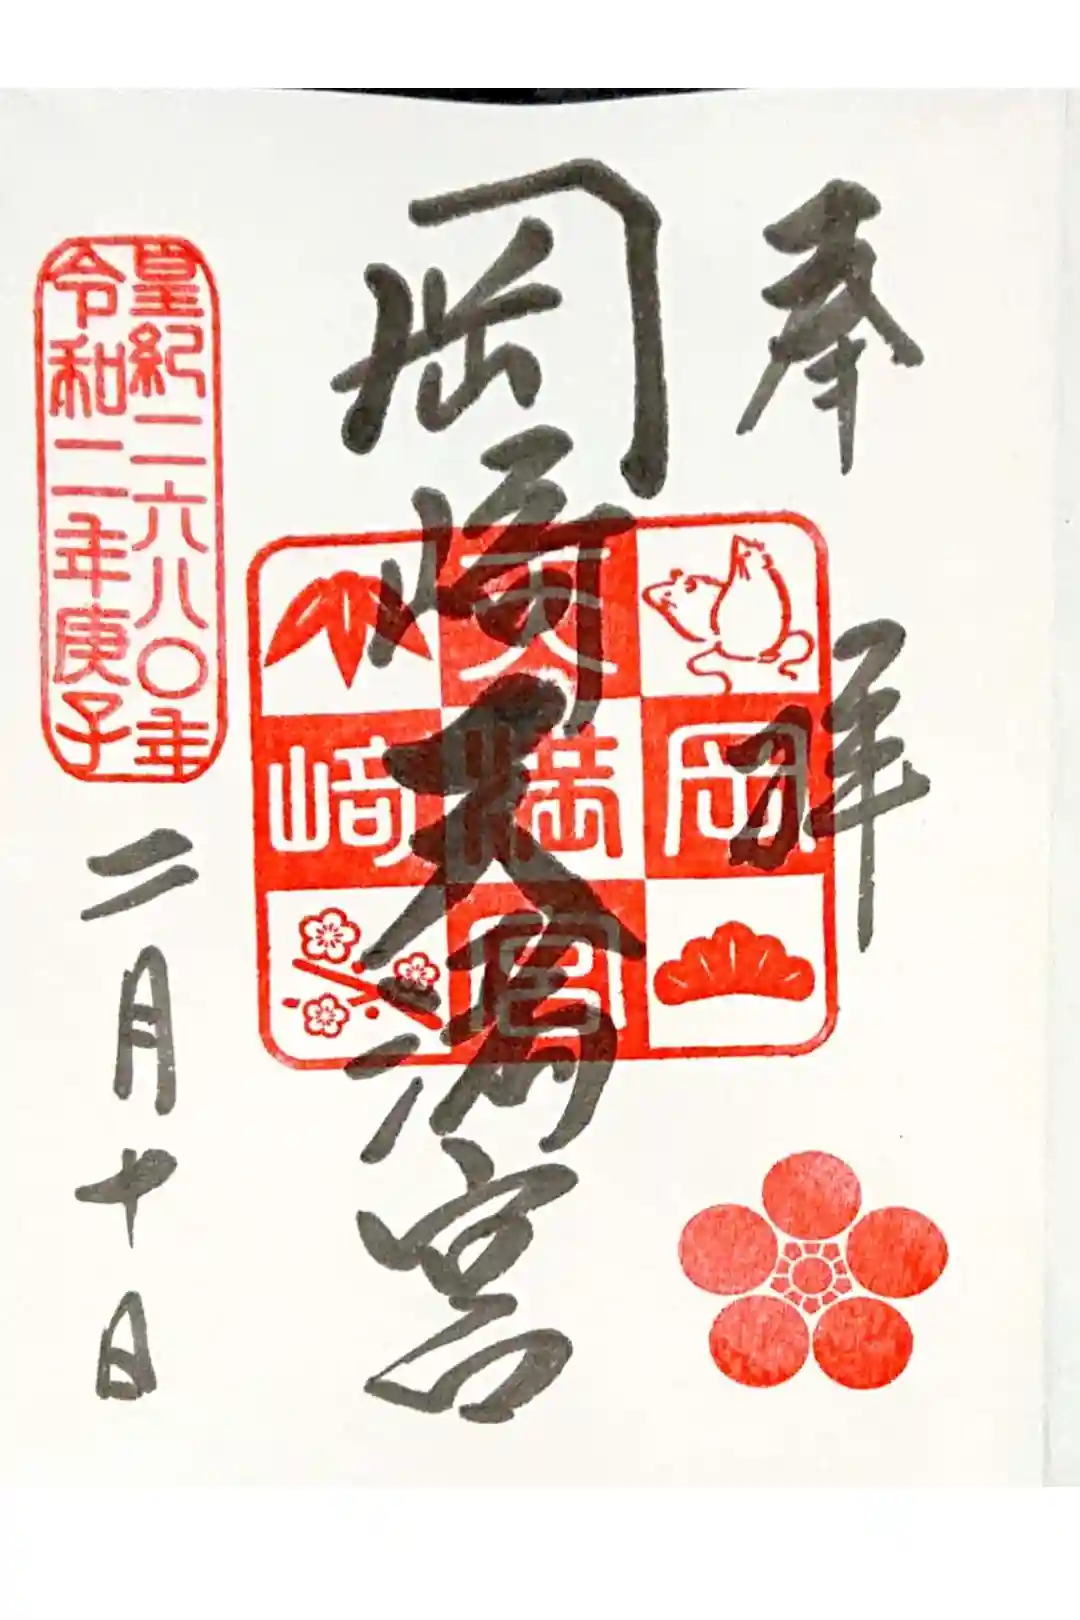 奉拝
岡崎天満宮
岡崎天満宮
皇紀二六八〇年
令和二年庚子
二月十日